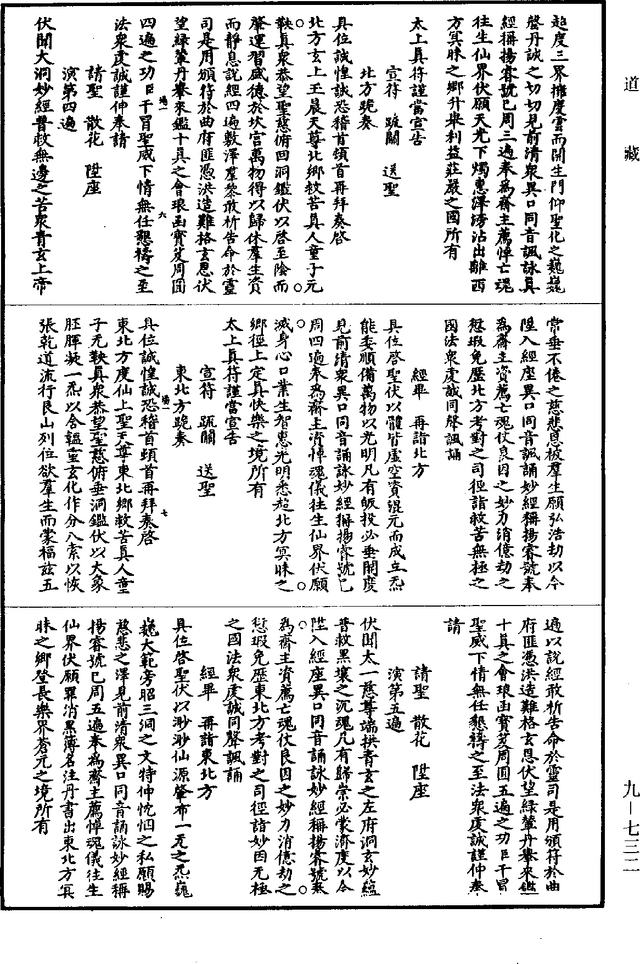 道藏
超度三界擁度雲而開生門仰聖化之巍巍
啓丹誠之切切見前清衆異口同音諷詠真
經稱揚睿號已周三遍奉為齋主薦悼亡魂
往生仙界伏願天光下燭惠澤滂沾出離西
方冥昧之鄉升舉利益莊嚴之國所有
太上真符謹當宣告
宣符 疏關 送聖
北方跪奏
具位誠惶誠恐稽首頓首再拜奏啓
北方玄上玉晨天尊北鄉救苦真人童子元
軼真衆恭望聖慈俯回洞鑑伏以啓至陰而
肇運習盛德於坎宮萬物得以歸休羣生資
而靜息說經四遍敷澤羣黎敢析告命於靈
司是用頒符於曲府匪憑洪造難格玄恩伏
望綠輦丹轝來鑑十真之會琅函寶芨周圓
四遍之功臣干冒聖威下情無任懇禱之至
法衆虔誠謹伸奉請
請聖 散花 陞座
演第四遍
伏聞大洞妙經普救無邊之苦衆青玄上帝
常垂不倦之慈悲息被羣生願弘浩劫以今
陞入經座異口同音諷誦妙經稱揚睿號奉
為齋主資薦亡魂仗良因之妙力消億劫之
愆瑕免歷北方考對之司徑詣救苦無極之
國法衆虔誠同聲諷誦
經畢 再詣北方
具位啓聖伏以體皆虛空資混元而成立炁
能委順備萬物以光明凡有皈投必垂開度
見前清衆異口同音誦詠妙經稱揚睿號已
周四遍奉為齋主資悼魂儀往生仙界伏願
滅身心口業生智惠光明悉超北方冥昧之
鄉徑上定真快樂之境所有
太上真符謹當宣告
宣符 疏關 送聖
東北方跪奏
具位誠惶誠恐稽首頓首再拜奏啓
東北方度仙上聖天尊東北鄉救苦真人童
子元軼真衆恭望聖慈俯垂洞鑑伏以大象
胚腪凝一炁以含韞重玄化作分八索以恢
張乾道流行艮山列位欲羣生而蒙福茲五
遍以說經敢析告命於靈司是用頒符於曲
府匪憑洪造難格玄恩伏望綠輦丹轝來鑑
十真之會琅函寶芨周圓五遍之功臣干冒
聖威下情無任懇禱之至法衆虔誠謹伸奉
請
請聖 散花 陞座
演第五遍
伏聞太一慈尊端拱青玄之左府洞玄妙蘊
普救黑壤之沉魂凡有歸崇必蒙濟度以今
陞入經座異口同音誦詠妙經稱揚睿號奉
為齋主資薦亡魂仗良因之妙力消億劫之
愆瑕免歷東北方考對之司徑詣妙因無極
之國法衆虔誠同聲諷誦
經畢 再詣東北方
具位啓聖伏以渺渺仙源肇布一元之炁巍
巍大範旁昭三洞之文特伸忱悃之私願賜
慈悲之澤見前清衆異口同音誦詠妙經稱
揚睿號已周五遍奉為齋主薦悼魂儀往生
仙界伏願罪消黑簿名注丹書出東北方冥
昧之鄉登長樂界蒼元之境所有
九—七三二